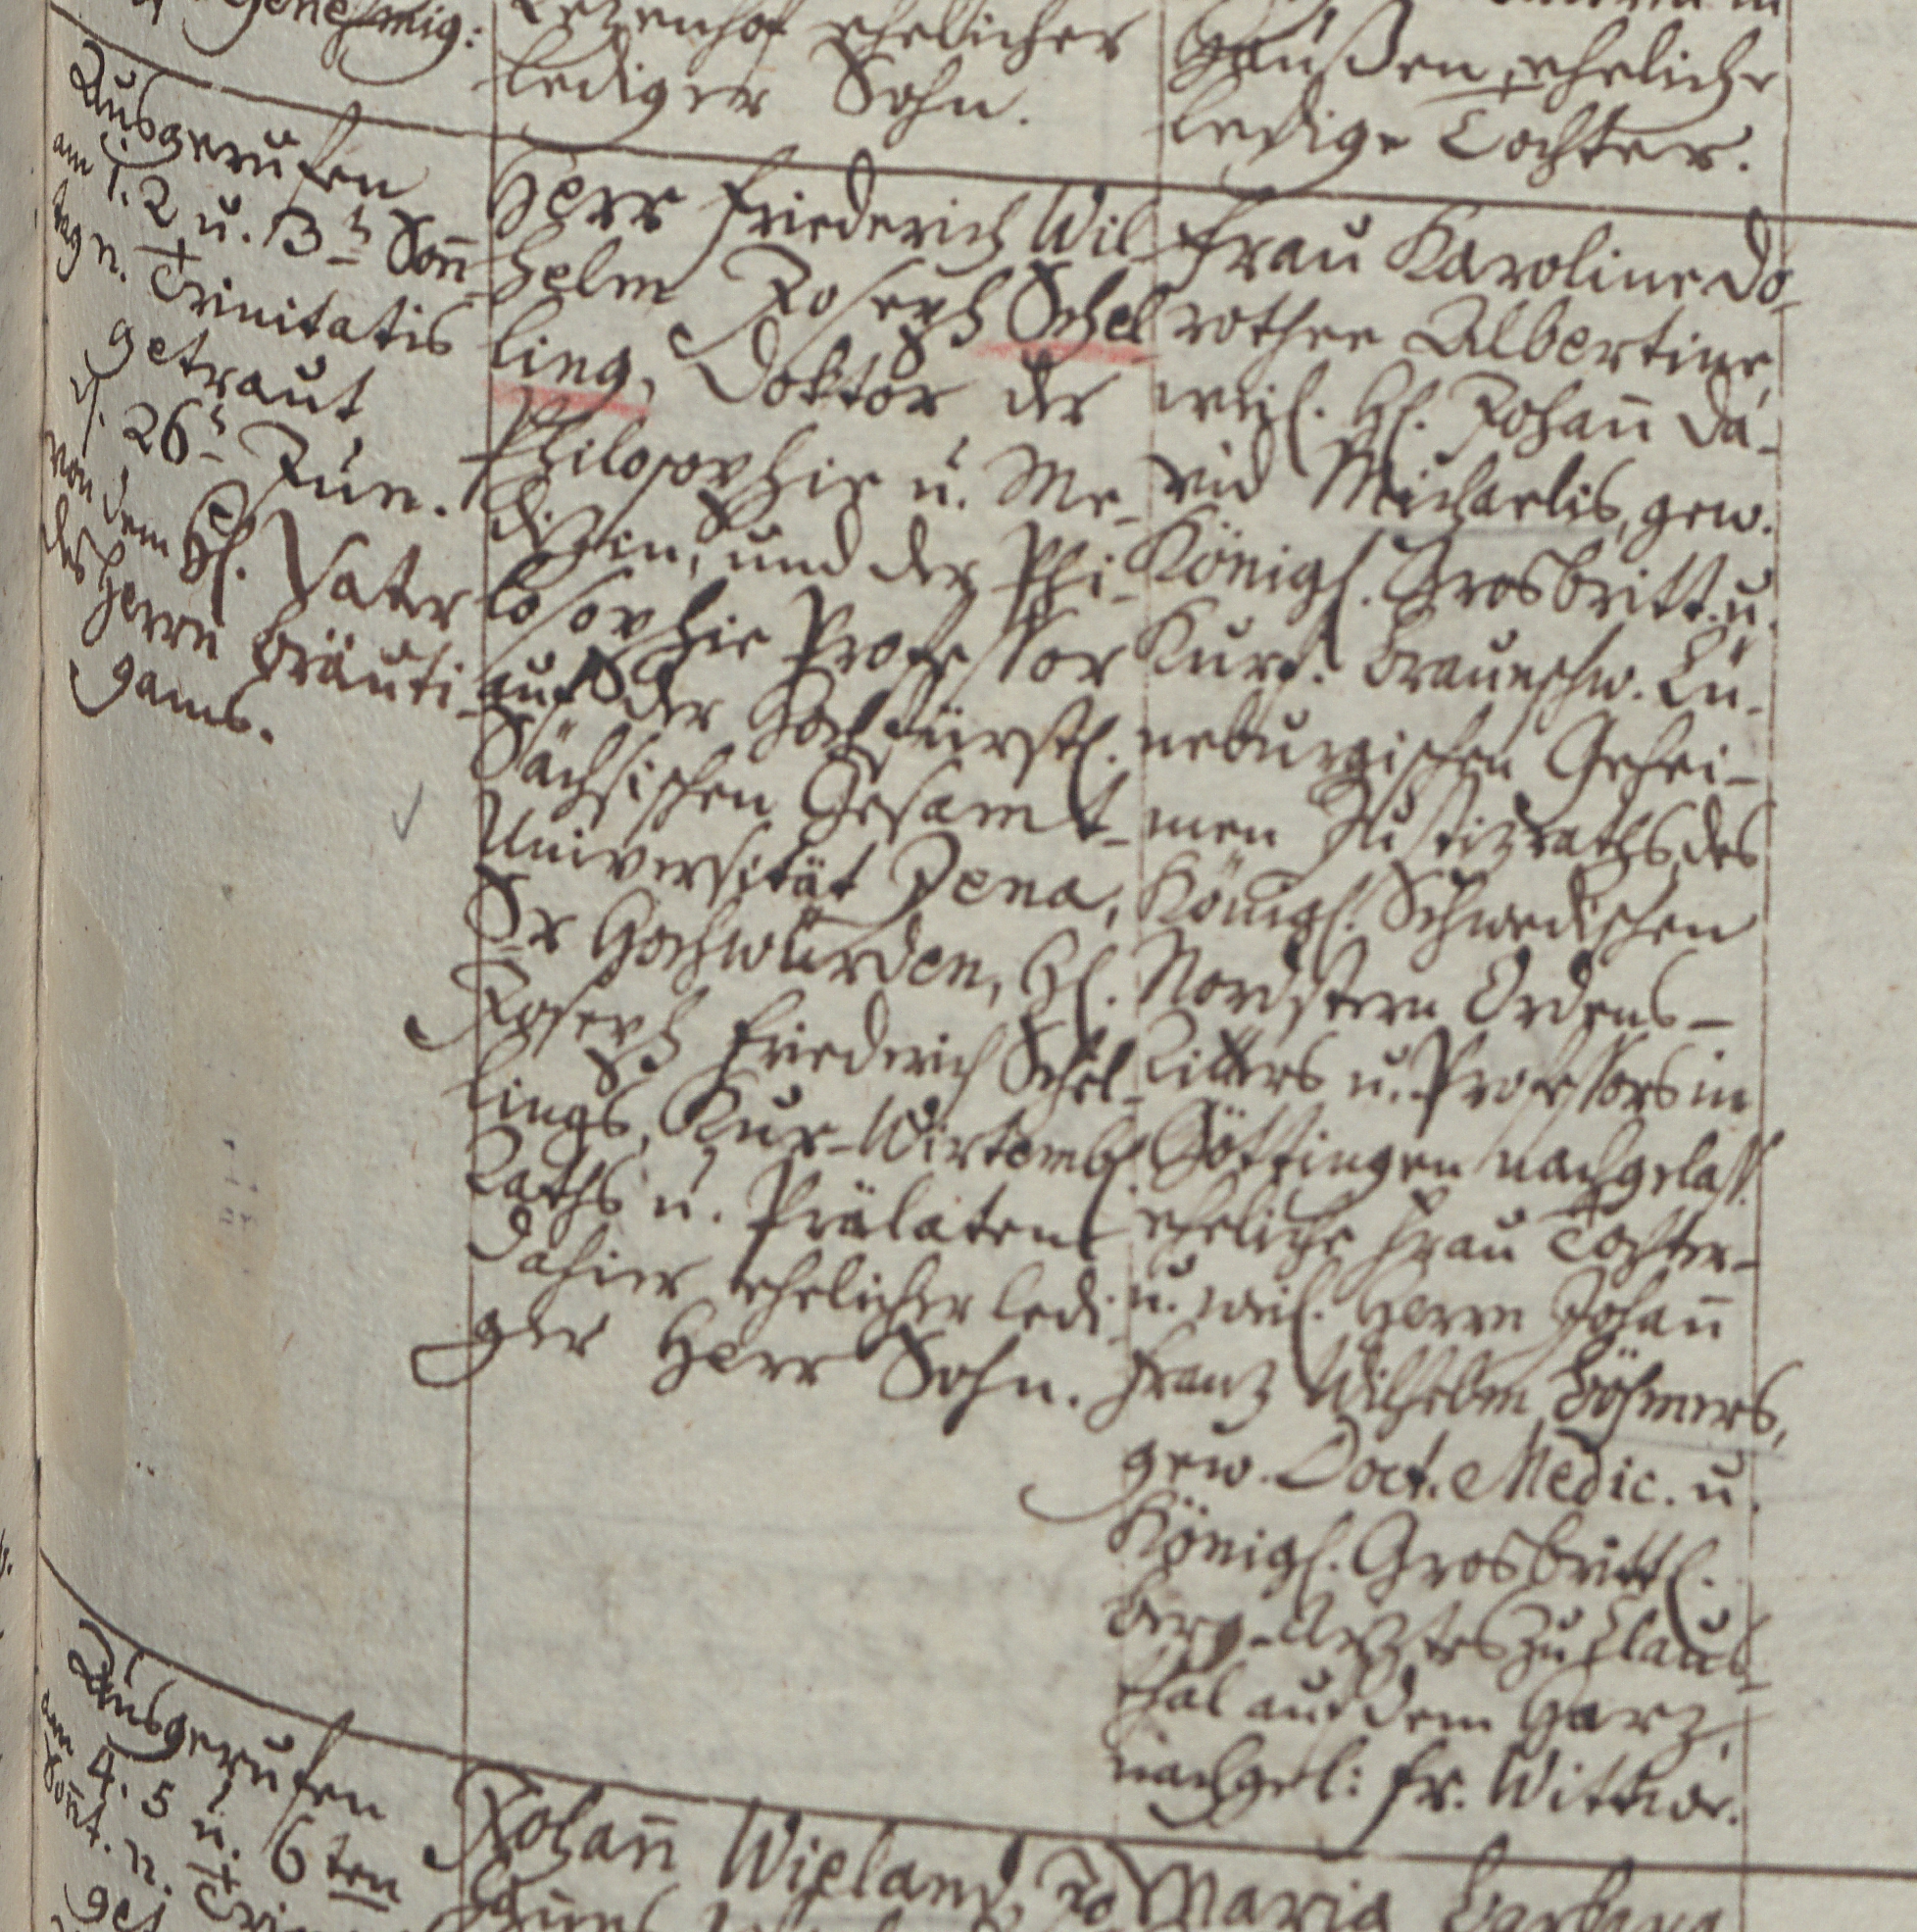 genehmig:
Letzenhof ehelicher
lediger Sohn.
Haußen, eheliche
ledige Tochter.
Ausgerufen
am 1. 2 u. 3n Soñ-
tag n. Trinitatis
getraut
d. 26n Jun.
von dem H. Vater
des Herrn Bräuti-
gams.
Herr Friederich Wil-
helm Joseph Schel
ling, Doktor der
Philosophie u. Me-
dizin, und der Phi-
losophie Professor
auf der Hochfürstl.
Sächsischen Gesamt-
Universität Jena,
Sr Hochwürden, H.
Joseph Friederich Schel-
lings, Kur-Wirtemb.
Raths u. Prälaten
dahier ehelicher ledi-
ger Herr Sohn.
Frau Karoline Do-
rothee Albertine,
weil. H. Johañ Da-
vid Michaelis, gew.
Königl. Grosbritt. u.
Kurf. Braunschw. Lü-
neburgischen Gehei-
men Justizraths, des
Königl. Schwedischen
Nordstern Ordens-
Ritters u. Professors in
Göttingen nachgelass.
eheliche Frau Tochter-
u. weil. Herrn Johañ
Franz Wilhelm Böhmers,
gew. Doct. Medic. u.
Königl. Grosbrittl.
Berg-Arztes zu Claus-
thal auf dem Harz,
nachgel: Fr. Wittwe.
Ausgerufen
am 4. 5 u. 6ten
Soñt. n. Tri
Johañ Wieland
Maria Barbara